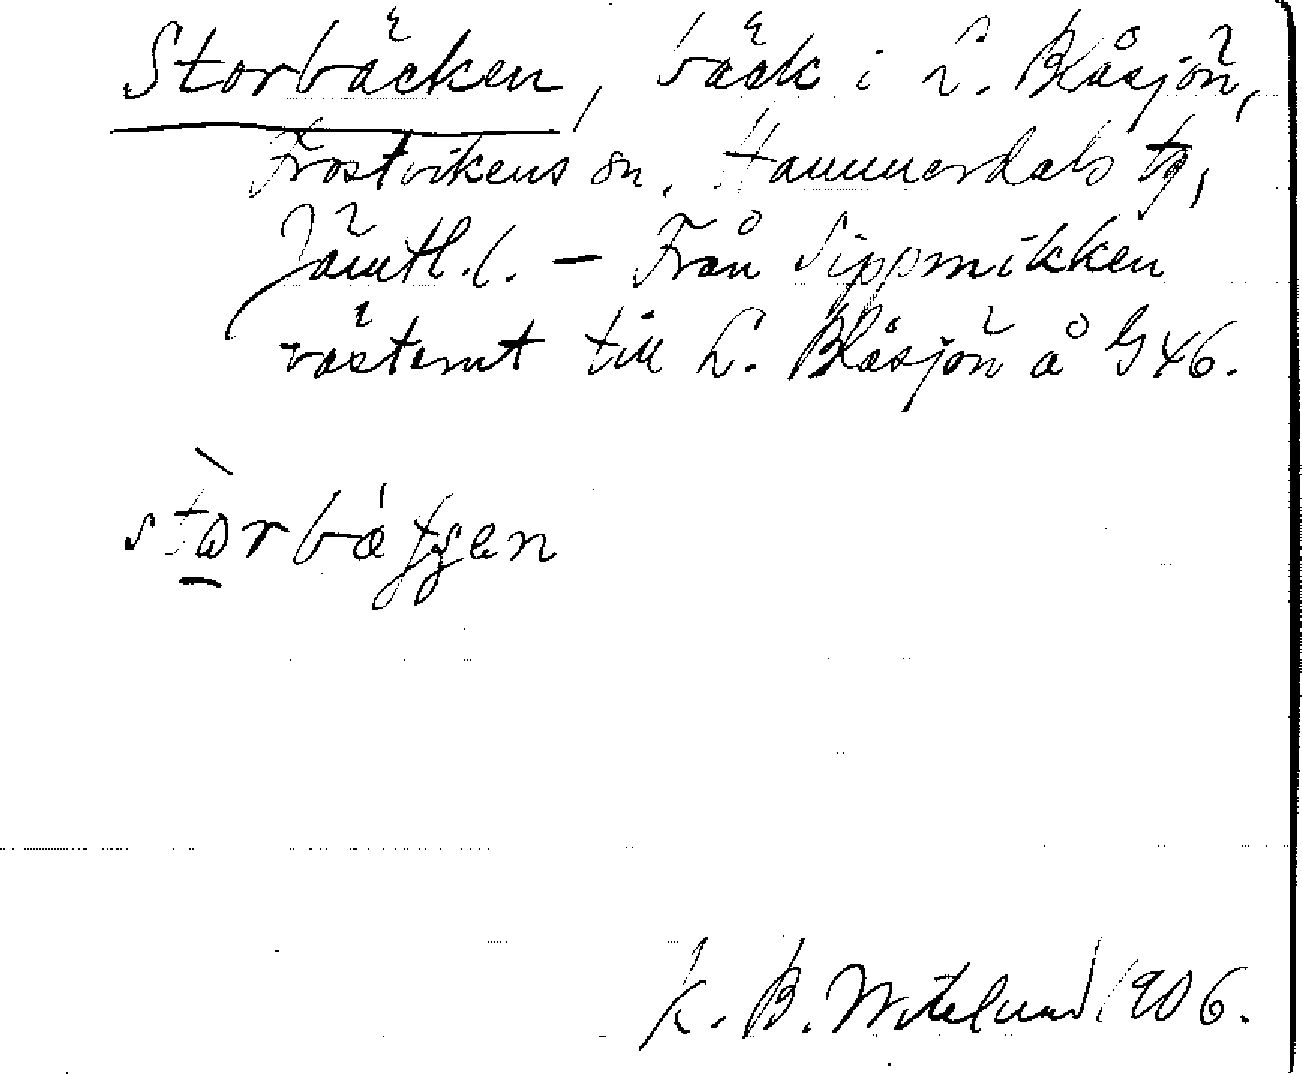 Storbäcken, bäck i L. Blåsjön,
Frostvikens sn, Hammerdals tg,
Jämtl. l. – Från Sippmikken
västerut till L. Blåsjön å G46.
K. B. Wiklund 1906.